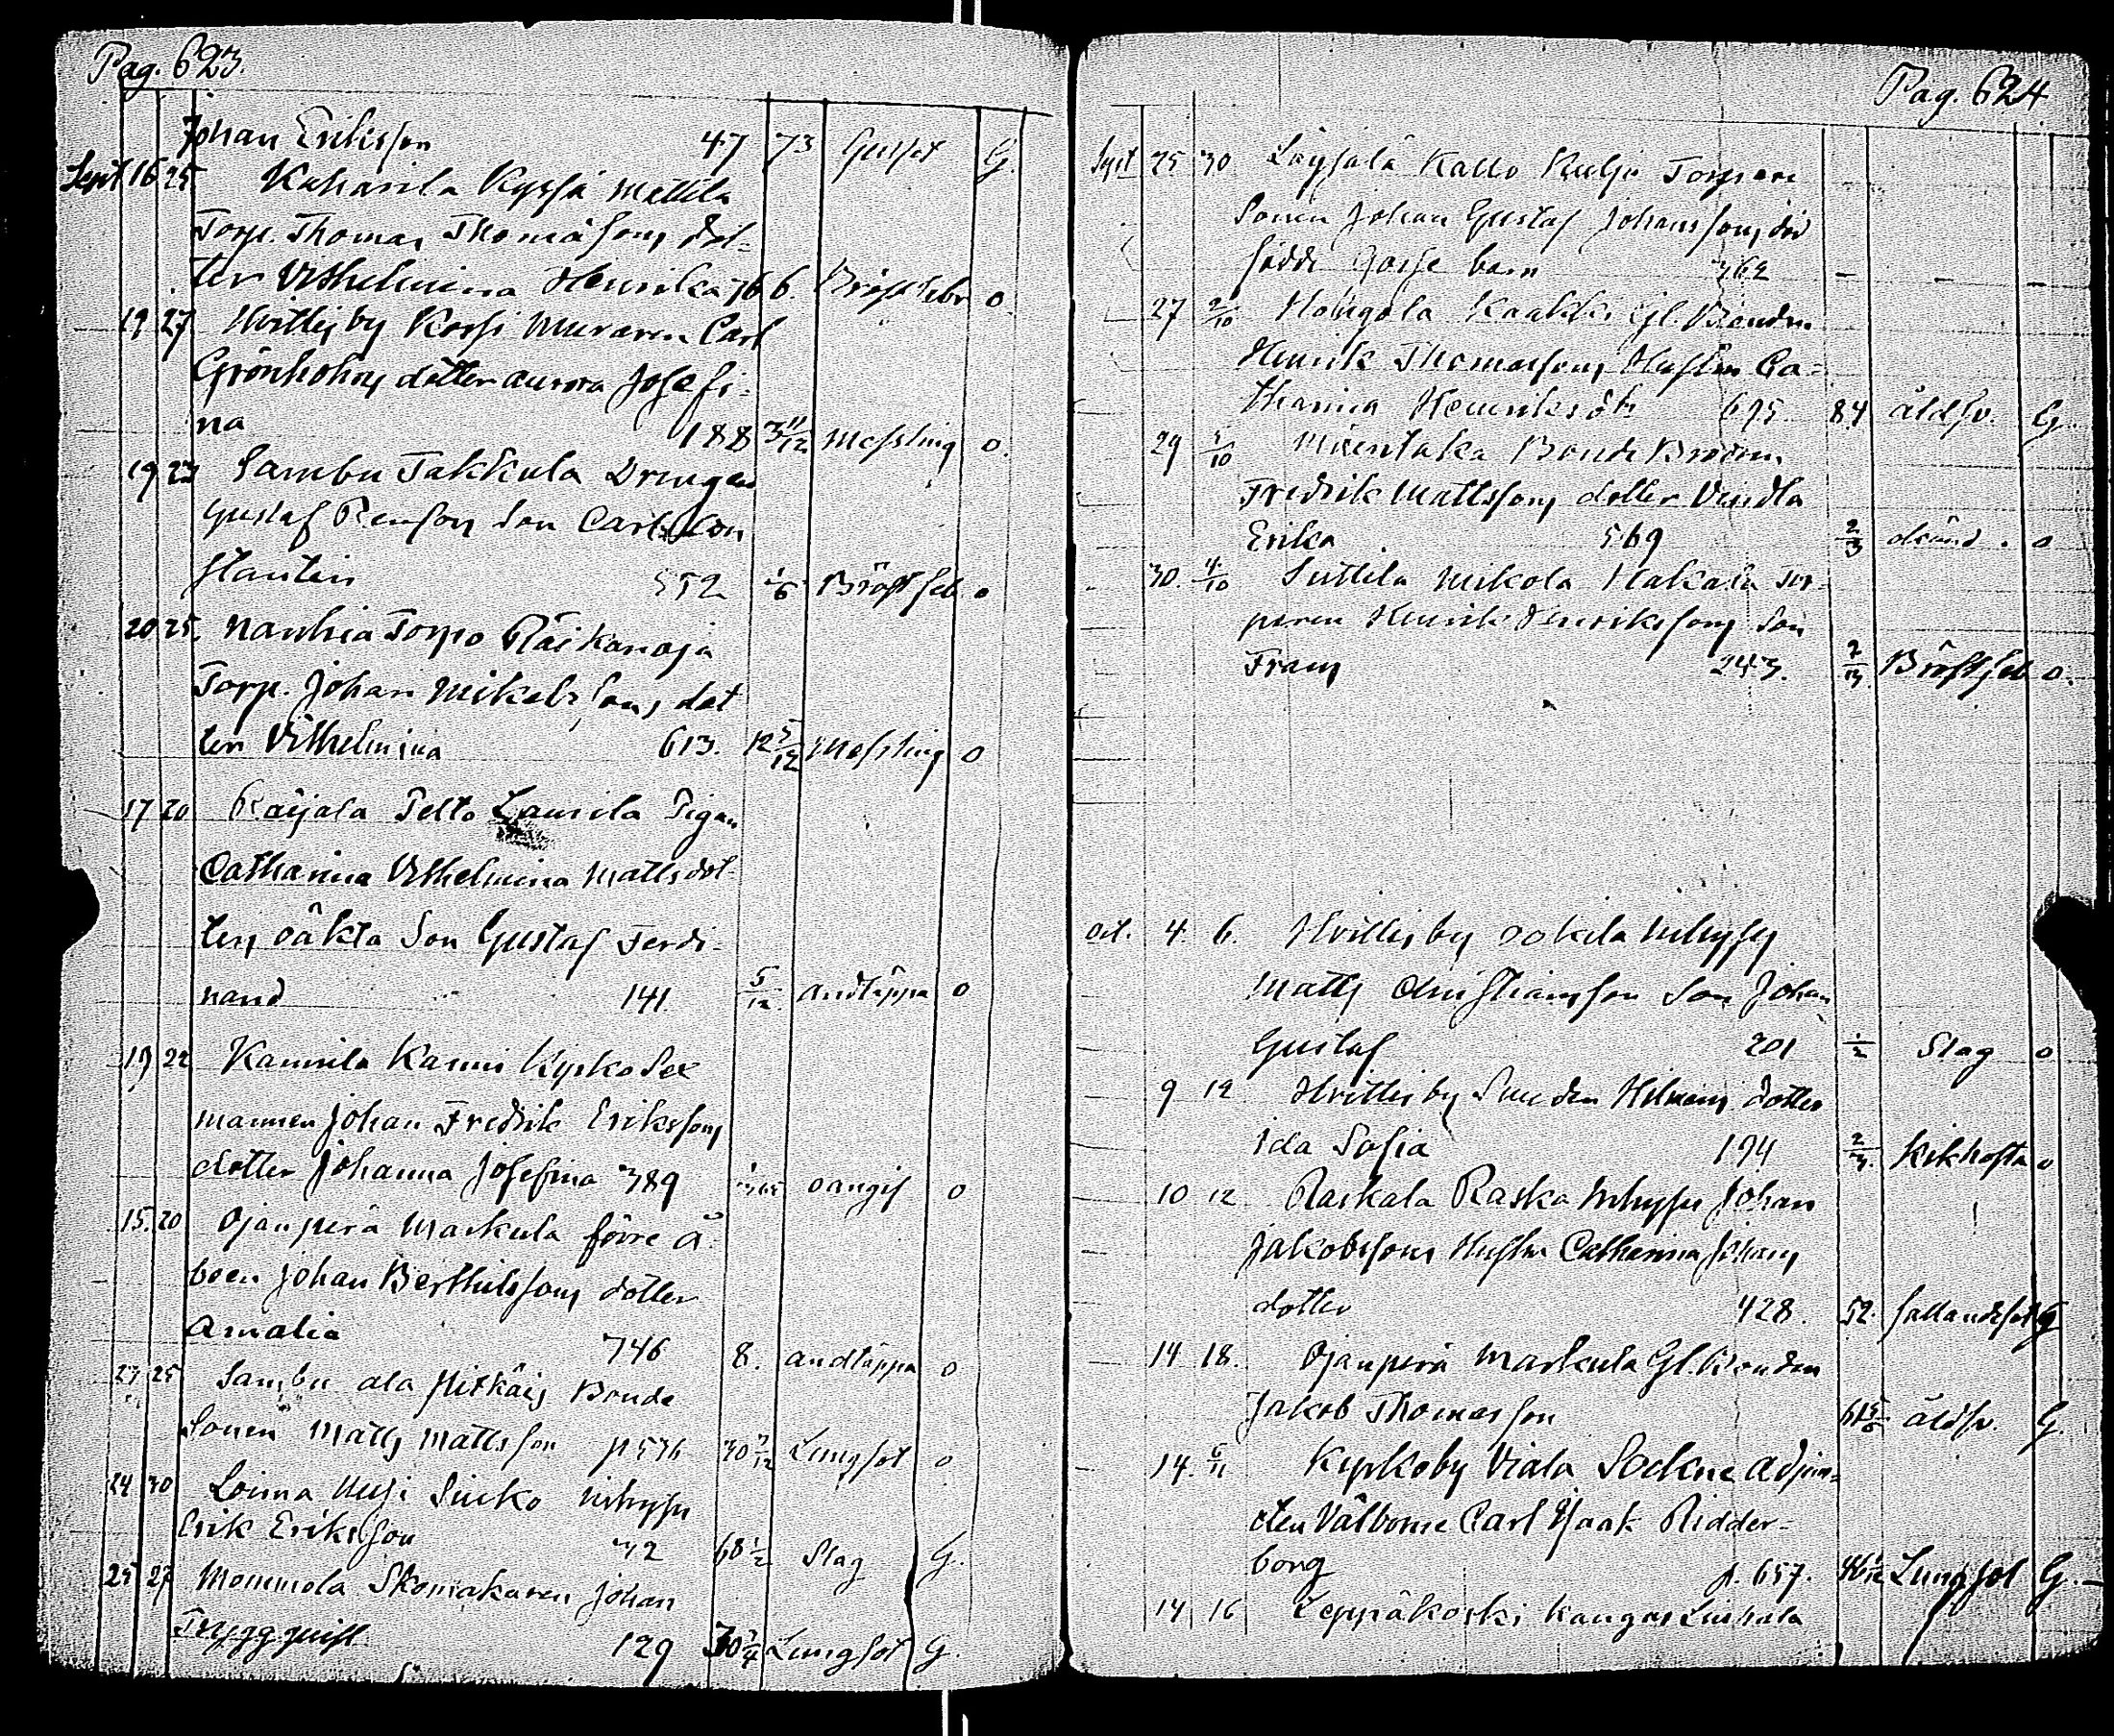 Pag. 623.
Johan Eriksson 47 73 Gulsot G.
Sept 16 25 Kuharila Kyssä Mattila
Torp. Thomas Thomassons dot-
ter Vilhelmina Henrika 766. Bröstfeber o
19 27 Hvittisby Korpi Muraren Carl
Grönholms dotter Aurora Josefi-
na 188 3 11/12 Messling o.
19 23 Sambu Takkula Drengen
Gustaf Rensons son Carl Con
stantin 552 1/6 Bröstfeb o
20 25. Nanhia Torpo Räikanoja
Torp. Johan Mikelssons dot
ter Vilhelmina 613. 12 5/12 Messling o
17 20 Raijala Pelto Laurila Pigan
Catharina Vilhelmina Mattsdot-
ters oäkta Son Gustaf Ferdi-
nand 141. 5/12 andtäppa o
19 22 Kannila Kanni Kyrko Sex
mannen Johan Fredrik Erikssons
dotter Johanna Josefina 389 oangif o
15. 20 Ojanperä Markula förre Å-
boen Johan Berthilssons dotter
Amalia 746 8. andtäppa o
25 Sambu ala Pitkäis Bonde
Sonen Matts Mattsson p 536 30 7/12 Lungsot o
24 30 Loima Uusi Sinko Inhyses
Erik Eriksson 32 68 1/2 Slag G.
25 27 Mommola Skomakaren Johan
Tryggquist 129 Lungsot G.
Pag. 624
Sept 25 30 Löysälä Kallo Kulju Torpare
Sonen Johan Gustaf Johanssons död
födde gosse barn 362 – – –
27 2/10 Hongola Kaakki Gl. Bonden
Henrik Thomassons Hustru Ca-
tharina Henriksdtr 695. 84 åldsv. G.
29 1/10 Mäentaka Bonde Brodern
Fredrik Mattssons dotter Vendla
Erika 569 2/3 okänd. o
30. 4/10 Suttila Mikola Isakala Tor-
paren Henrik Henrikssons Son
Frans 243. 2/3 Bröstfeb o.
Oct. 4. 6. Hvittisby Sokila Inhyses
Matts Christiansson Son Johan
Gustaf 201 1/2 Slag o
9 12 Hvittisby Smeden Hilmans dotter
Ida Sofia 194 2/3. Kikhosta o
10 12 Raskala Raska Inhyses Johan
Jakobssons Hustru Catharina Johans
dotter 428. 52. fallandesot G
14 18. Ojanperä Markula Gl. Bonden
Jakob Thomasson åldsv. G.
14. 5/11 Kyrkoby Viala Sockne Adjunc-
ten Välborne Carl Isaak Ridder-
borg p. 657. Lungsot G. –
14 16 Leppäkoski Kangas Liuhala